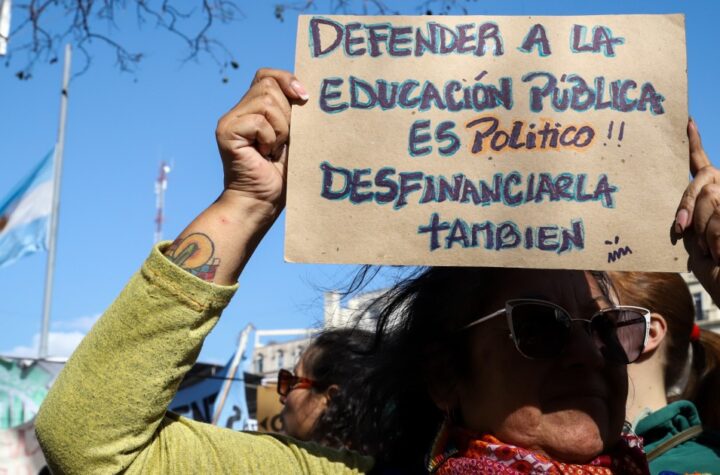 DEFENDER A LA
EDUCACIÓN PÚBLICA
ES POLITICO!!
DESFINANCIARLA
TAMBIEN